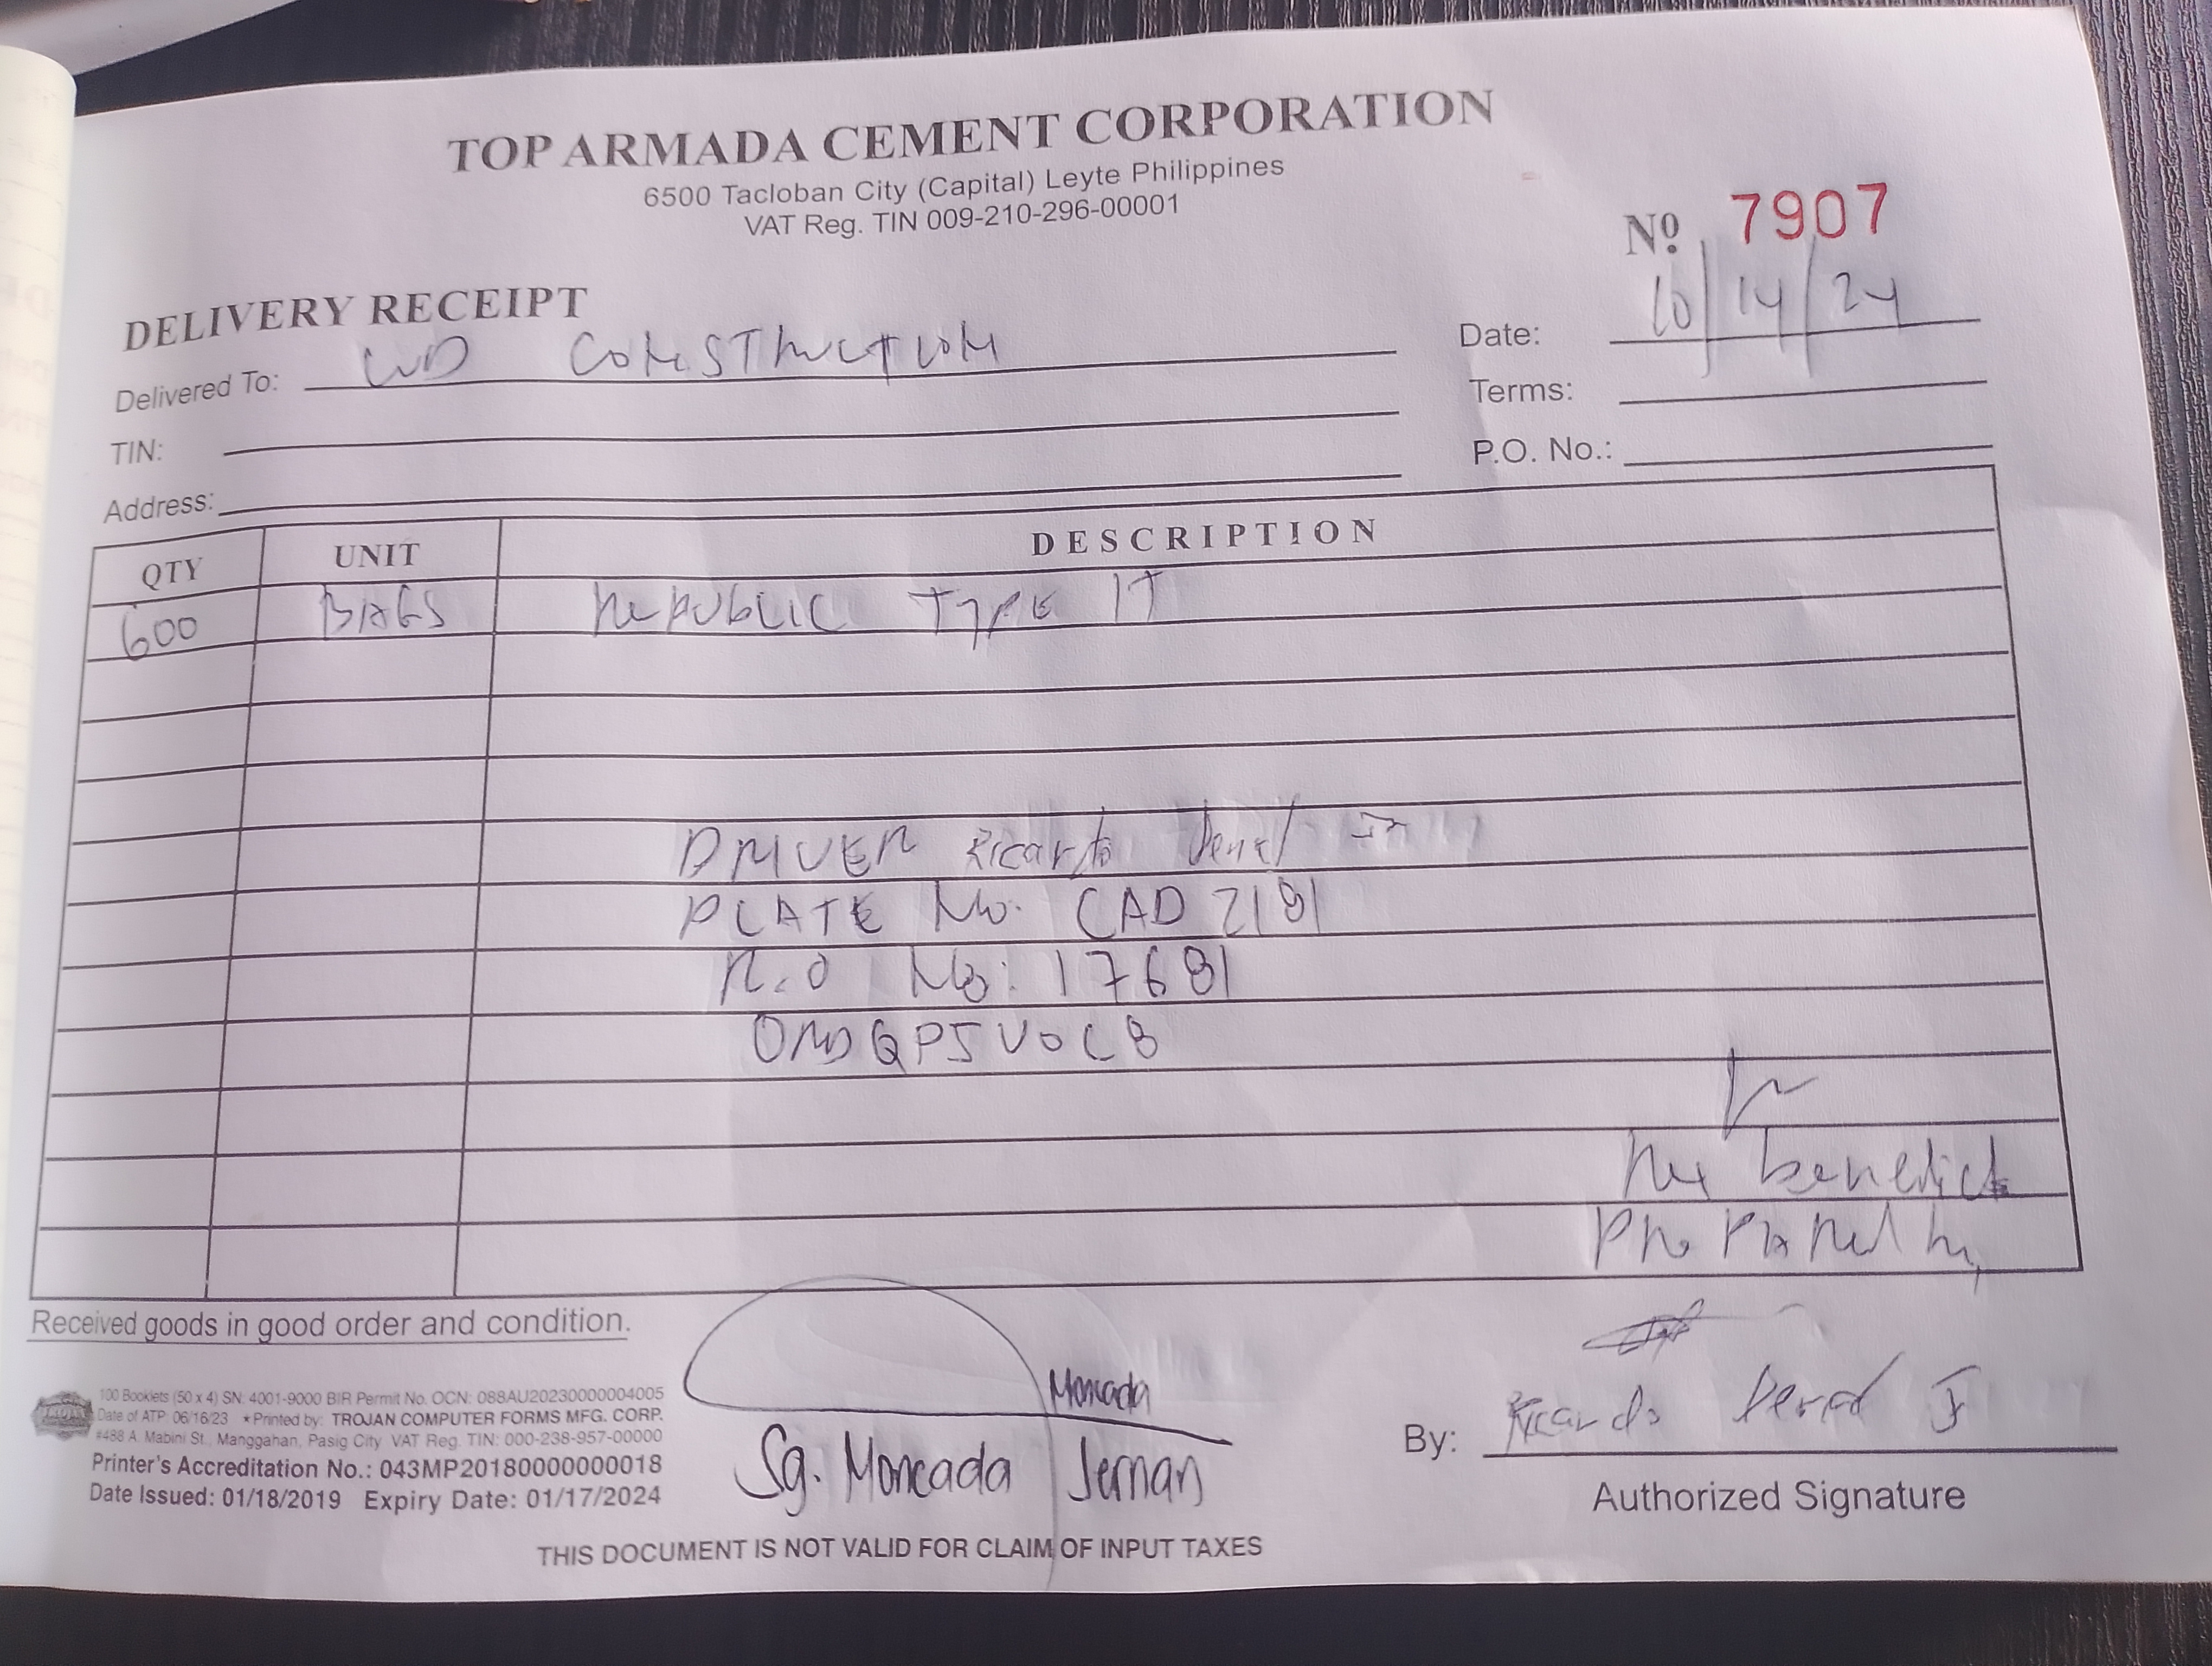 TOP ARMADA CEMENT CORPORATION
6500 Tacloban City (Capital) Leyte Philippines
VAT Reg. TIN 009-210-296-00001
Nº 7907
DELIVERY RECEIPT
Date: 10/14/24
Delivered To: WD CONSTRUCTION
Terms:
TIN:
P.O. No.:
Address:
QTY UNIT DESCRIPTION
600 BAGS REPUBLIC TYPE 1T
DRIVER Ricardo Jr
PLATE No. CAD 2181
R.O No: 17681
Rex benedict
Received goods in good order and condition.
Moncada
100 Booklets (50 x 4) SN: 4001-9000 BIR Permit No. OCN: 088AU20230000004005
Date of ATP: 06/16/23 ★Printed by: TROJAN COMPUTER FORMS MFG. CORP.
#488 A. Mabini St., Manggahan, Pasig City VAT Reg. TIN: 000-238-957-00000
Printer's Accreditation No.: 043MP20180000000018
Date Issued: 01/18/2019 Expiry Date: 01/17/2024
Sg. Moncada Jernan
By: Ricardo Jr
Authorized Signature
THIS DOCUMENT IS NOT VALID FOR CLAIM OF INPUT TAXES